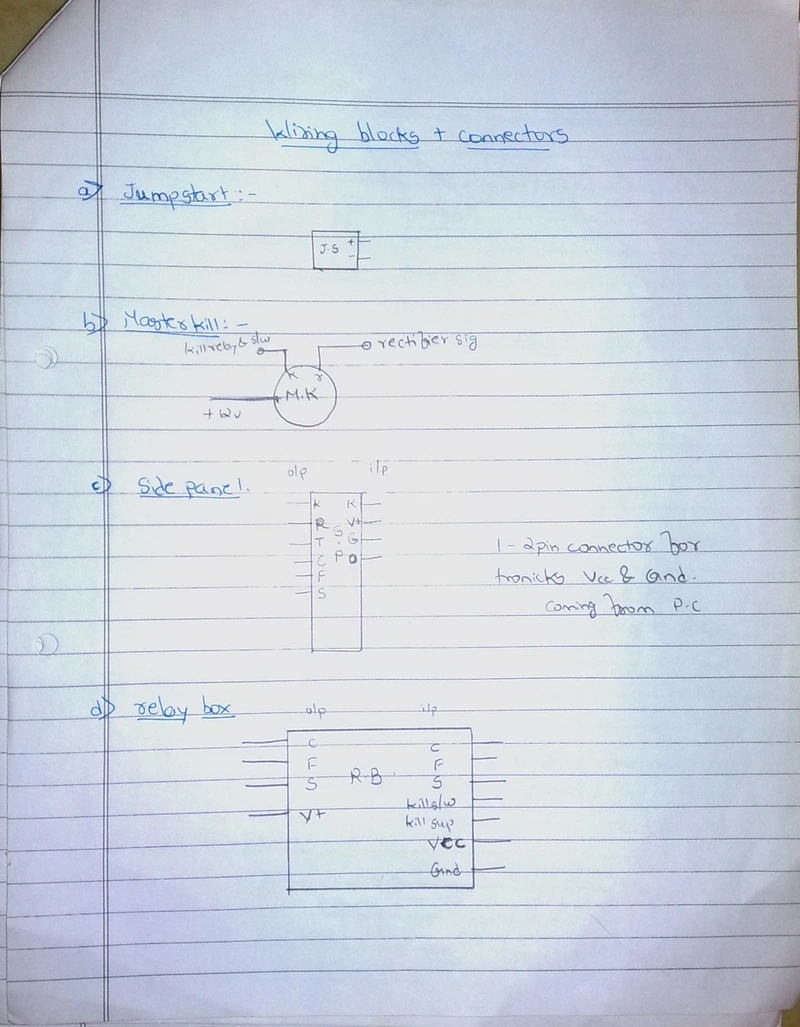 Wiring blocks + connectors
a) Jumpstart :-
J.S +
-
b) Master kill :-
kill relay & s/w
rectifier sig
K r
+ M.K
+12v
o/p i/p
c) Side panel.
K K
R V+
T G
C O
F
S
S.P
1 - 2pin connector for
tronicks Vcc & Gnd.
coming from P.C
d) relay box
o/p i/p
C C
F F
S R.B. S
kill s/w
V+ kill sup
VCC
Gnd